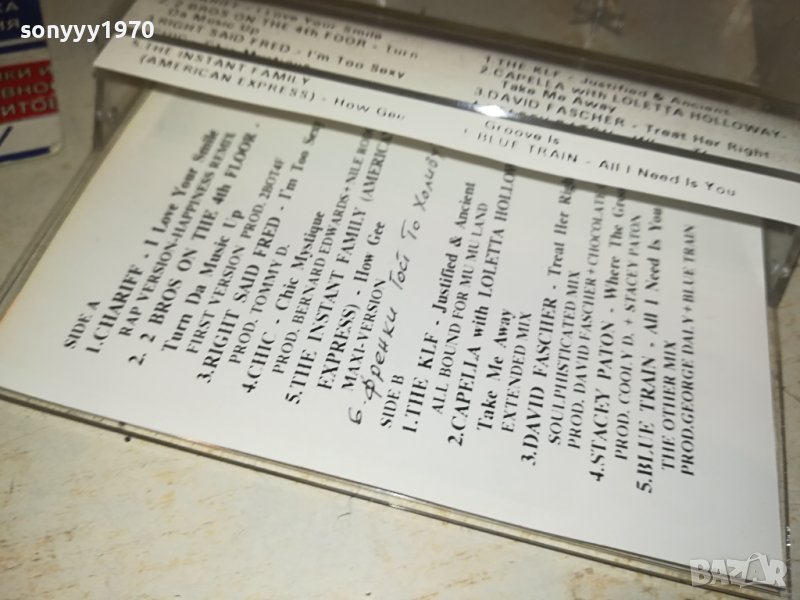 sonyyy1970
I Love Your Smile
2. 2 BROS ON THE 4th FOOR - Turn
Da Music Up
RIGHT SAID FRED - I'm Too Sexy
5. THE INSTANT FAMILY
(AMERICAN EXPRESS) - How Gee
1. THE KLF - Justified & Ancient
2. CAPELLA with LOLETTA HOLLOWAY-
Take Me Away
3. DAVID FASCHER - Treat Her Right
Groove Is
BLUE TRAIN - All I Need Is You
SIDE A
1.CHARIFF - I Love Your Smile
RAP VERSION-HAPPINESS REMIX
2. 2 BROS ON THE 4th FLOOR -
Turn Da Music Up
FIRST VERSION PROD. 2BOT4F
3.RIGHT SAID FRED - I'm Too Sexy
PROD. TOMMY D.
4.CHIC - Chic Mystique
PROD. BERNARD EDWARDS+NILE
5.THE INSTANT FAMILY (AMERICAN
EXPRESS) - How Gee
MAXI-VERSION
6. Френки Гоей То Холиву
SIDE B
1.THE KLF - Justified & Ancient
ALL BOUND FOR MU MU LAND
2.CAPELLA with LOLETTA HOLLOW
Take Me Away
EXTENDED MIX
3.DAVID FASCHER - Treat Her Righ
SOULPHISTICATED MIX
PROD. DAVID FASCHER+CHOCOLATI
4.STACEY PATON - Where The Gro
PROD. COOLY D. + STACEY PATON
5.BLUE TRAIN - All I Need Is You
THE OTHER MIX
PROD.GEORGE DALY+BLUE TRAIN
BAZAR